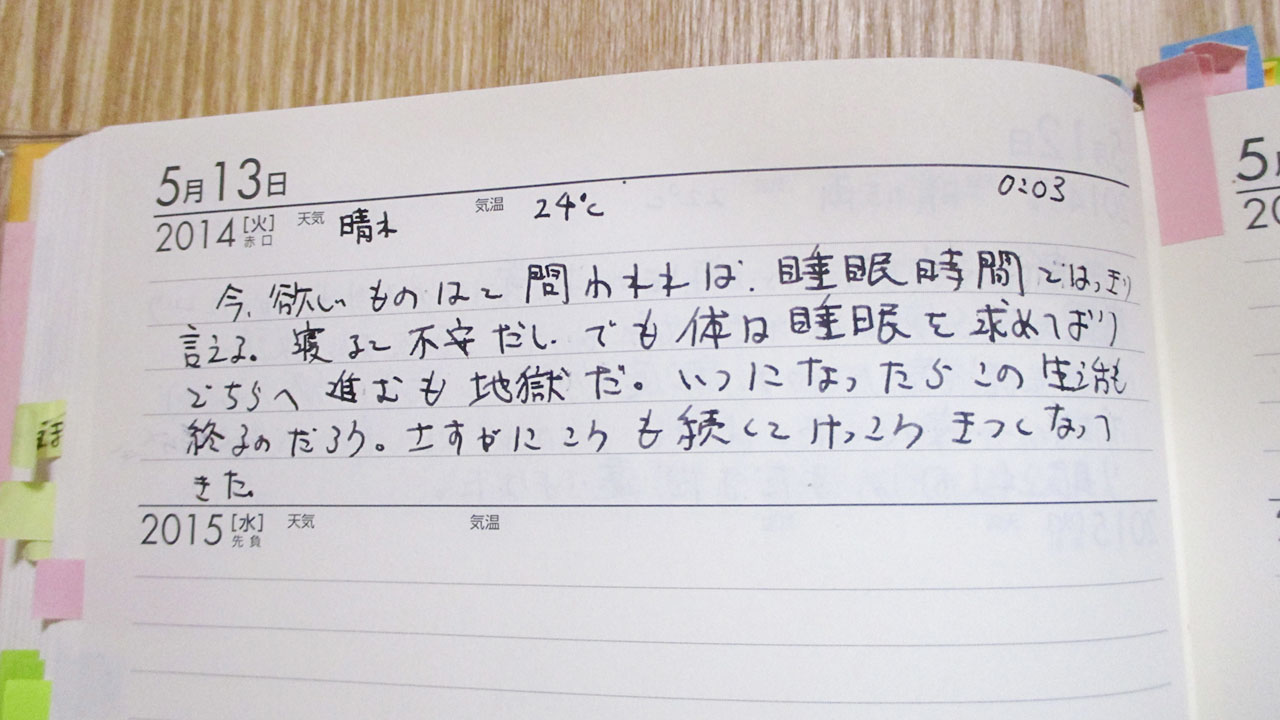 5月13日
2014 [火] 赤口 天気 晴れ 気温 24℃ 0:03
今、欲しいものはと問われれば、睡眠時間ではっきり
言える。寝ると不安だし、でも体は睡眠を求めており
どちらへ進むも地獄だ。いつになったらこの生活も
終るのだろう。さすがにこうも続くとけっこうきつくなって
きた。
2015 [水] 先負 天気 気温
5